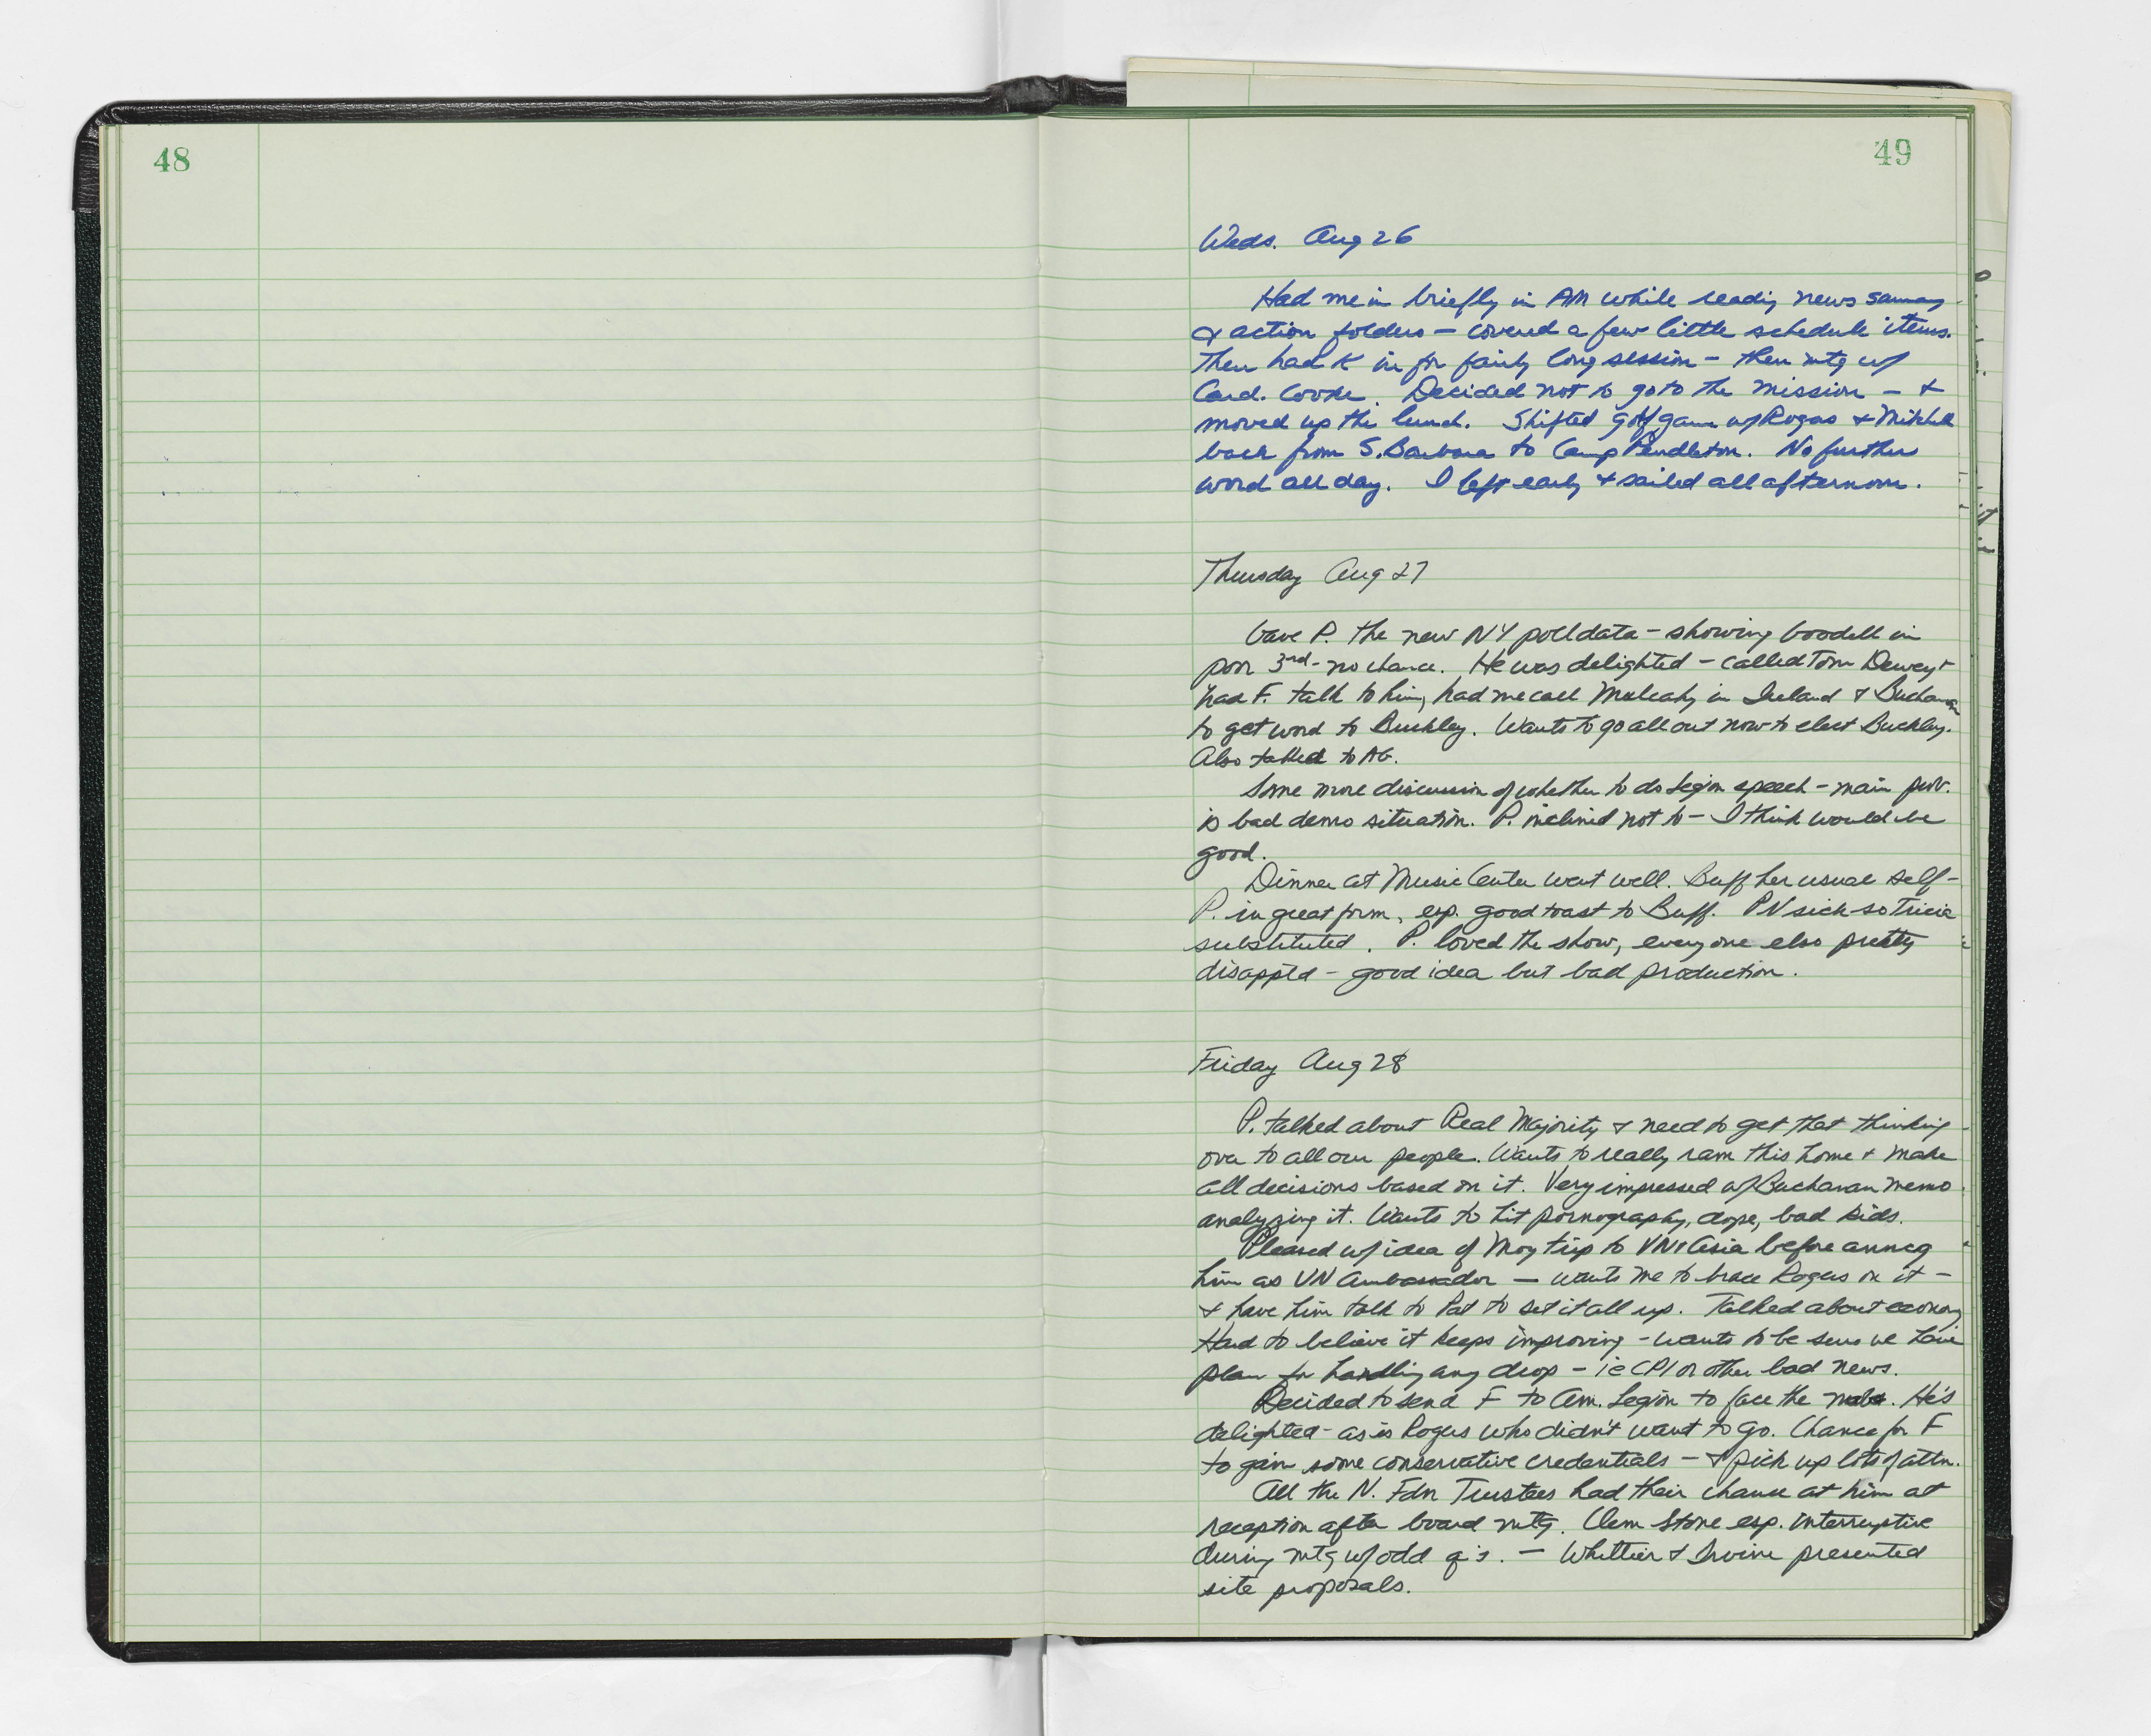 48
49
Weds. Aug 26
Had me in briefly in AM while readig news summary
& action folders – covered a few little schedule items.
Then had K in for fairly long session – then mtg w/
Card. Cooke. Decided not to go to the Mission – &
moved up the lunch. Shifted golf game w/ Rogers & Mitchell
back from S. Barbara to Camp Pendleton. No further
word all day. I left early & sailed all afternoon.
Thursday Aug 27
Gave P. the new NY poll data – showing Goodell in
poor 3rd – no chance. He was delighted – called Tom Dewey &
had F. talk to him, had me call Mulcahy in Ireland & Buchanan
to get word to Buckley. Wants to go all out now to elect Buckley.
Also talked to AG.
Some more discussion of whether to do Legion speech – main prob.
is bad demo situation. P. inclined not to – I think would be
good.
Dinner at Music Center went well. Buff her usual self –
P. in great form, esp. good toast to Buff. PN sick – so Tricia
substituted. P. loved the show, everyone else pretty
disapp'td – good idea but bad production.
Friday Aug 28
P. talked about Real Majority & need to get that thinking
over to all our people. Wants to really ram this home & make
all decisions based on it. Very impressed w/ Buchanan memo
analyzing it. Wants to hit pornography, dope, bad kids.
Pleased w/ idea of Moy trip to VN & Asia before anncg
him as UN Ambassador – wants me to brace Rogers on it –
& have him talk to Pat to set it all up. Talked about economy
Hard to believe it keeps improving – wants to be sure we have
plan for handling any drop – ie CPI or other bad news.
Decided to send F to Am. Legion to face the mobs. He's
delighted – as is Rogers who didn't want to go. Chance for F
to gain some conservative credentials – & pick up lots of attn.
All the N. Fdn Trustees had their chance at him at
reception after board mtg. Clem Stone esp. interruptive
during mtg w/ odd q's. – Whittier & Irvine presented
site proposals.